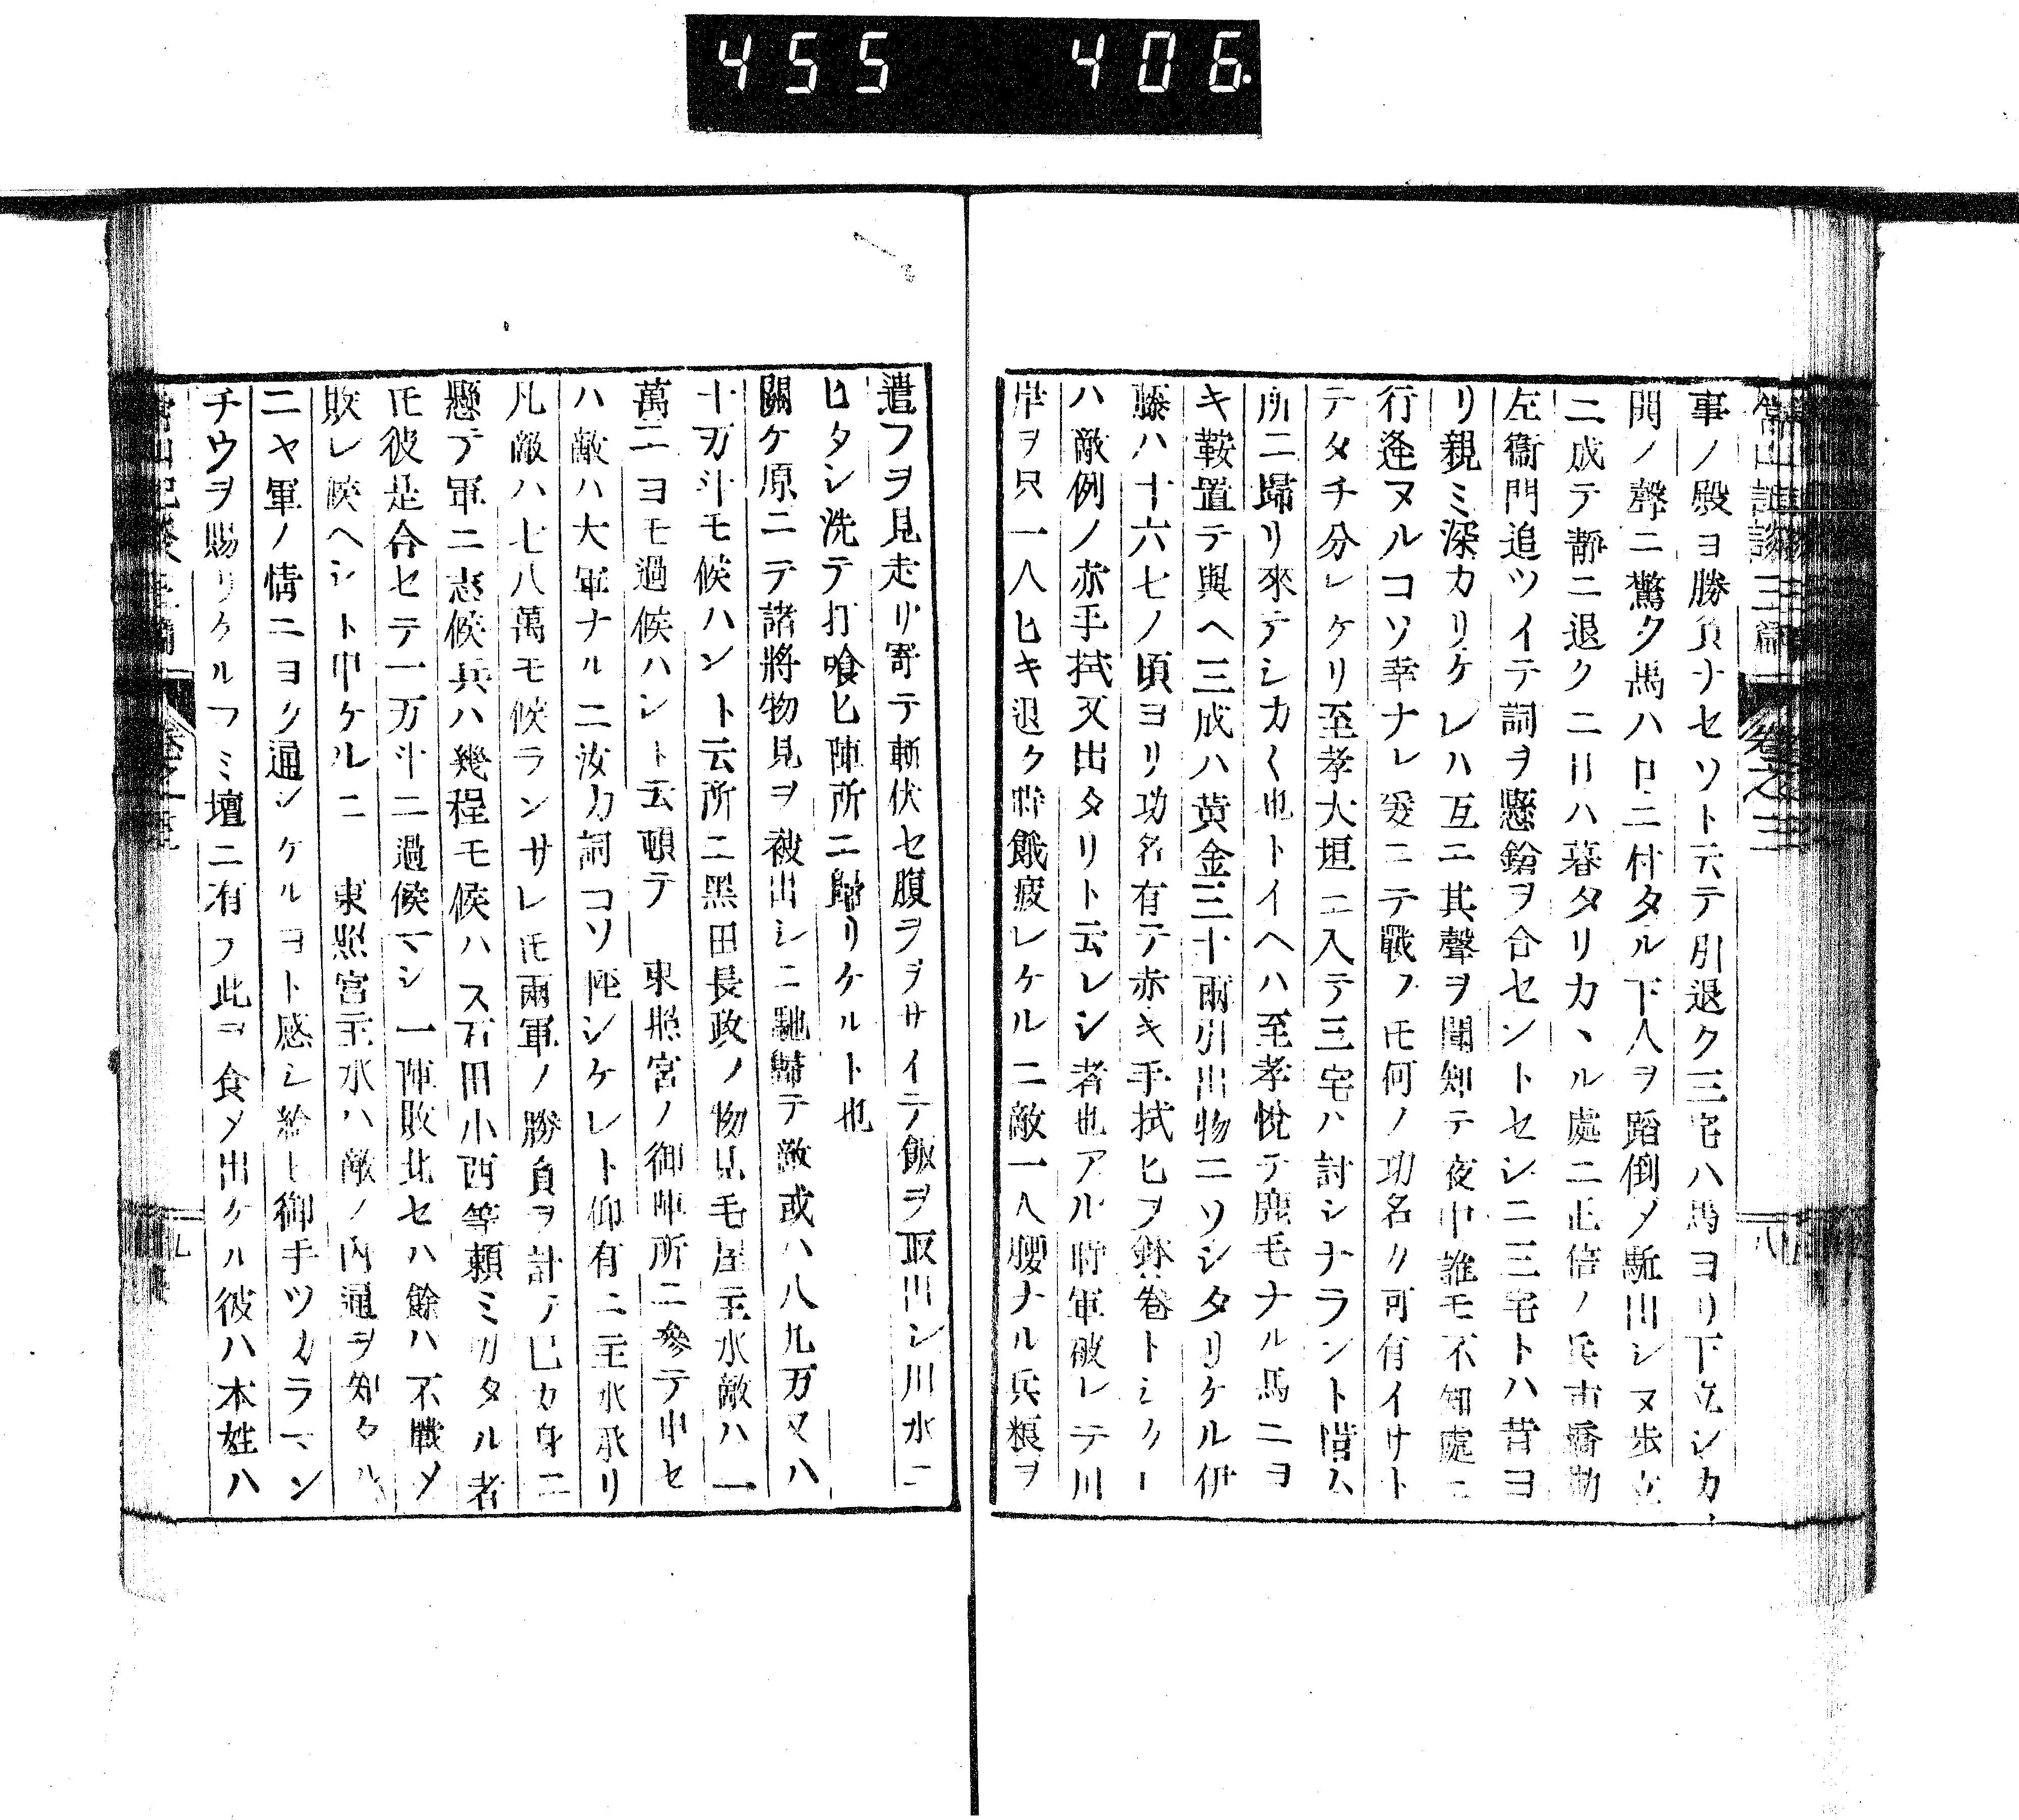 455 406.
常山記談三篇 卷之三 八
事ノ殿ヨ勝負ナセソト云テ引退ク三宅ハ馬ヨリ下立シカ
閧ノ聲ニ驚ク馬ハ口ニ付タル下人ヲ蹈倒メ駈出シヌ歩立
ニ成テ靜ニ退クニ日ハ暮タリカヽル處ニ正倍ノ兵市橋勘
左衞門追ツイテ詞ヲ懸鎗ヲ合セントセシニ三宅トハ昔ヨ
リ親ミ深カリケレハ互ニ其聲ヲ聞知テ夜中誰モ不知處ニ
行逢ヌルコソ幸ナレ爰ニテ戰フ𪜈何ノ功名ク可有イサト
テタチ分レケリ至孝大垣ニ入テ三宅ハ討シナラント問ハ
所ニ歸リ來テシカ〱也トイヘハ至孝悅テ鹿毛ナル馬ニヨ
キ鞍置テ與ヘ三成ハ黄金三十兩引出物ニソシタリケル伊
藤ハ十六七ノ頃ヨリ功名有テ赤キ手拭ヒヲ鉢卷トシケ
ハ敵例ノ赤手拭又出タリト云レシ者也アル時軍破レテ川
岸ヲ只一人ヒキ退ク時餓疲レケルニ敵一人腰ナル兵粮ヲ
遣フヲ見走リ寄テ斬伏セ腹ヲヲサイテ飯ヲ取出シ川水ニ
ヒタシ洗テ打喰ヒ陣所ニ歸リケルト也
關ケ原ニテ諸將物見ヲ被出シニ馳歸テ敵或ハ八九万又ハ
十万斗モ候ハント云所ニ黑田長政ノ物見毛屋主水敵ハ一
萬ニヨモ過候ハント云頓テ 東照宮ノ御陣所ニ參テ申セ
ハ敵ハ大軍ナルニ汝カ詞コソ陣シケレト仰有ニ主水承リ
凡敵ハ七八萬モ候ランサレ𪜈兩軍ノ勝負ヲ計テ己カ身ニ
懸テ軍ニ志候兵ハ幾程モ候ハス石田小西等頼ミカタル者
𪜈彼是合セテ一万斗ニ過候マシ一陣敗北セハ餘ハ不戰メ
敗レ候ヘシト申ケルニ 東照宮主水ハ敵ノ内通ヲ知タル
ニヤ軍ノ情ニヨク通シケルヨト感シ給ヒ御手ツカラマン
チウヲ賜リケルフミ壇ニ有フ此ヲ食メ出ケル彼ハ本姓ハ